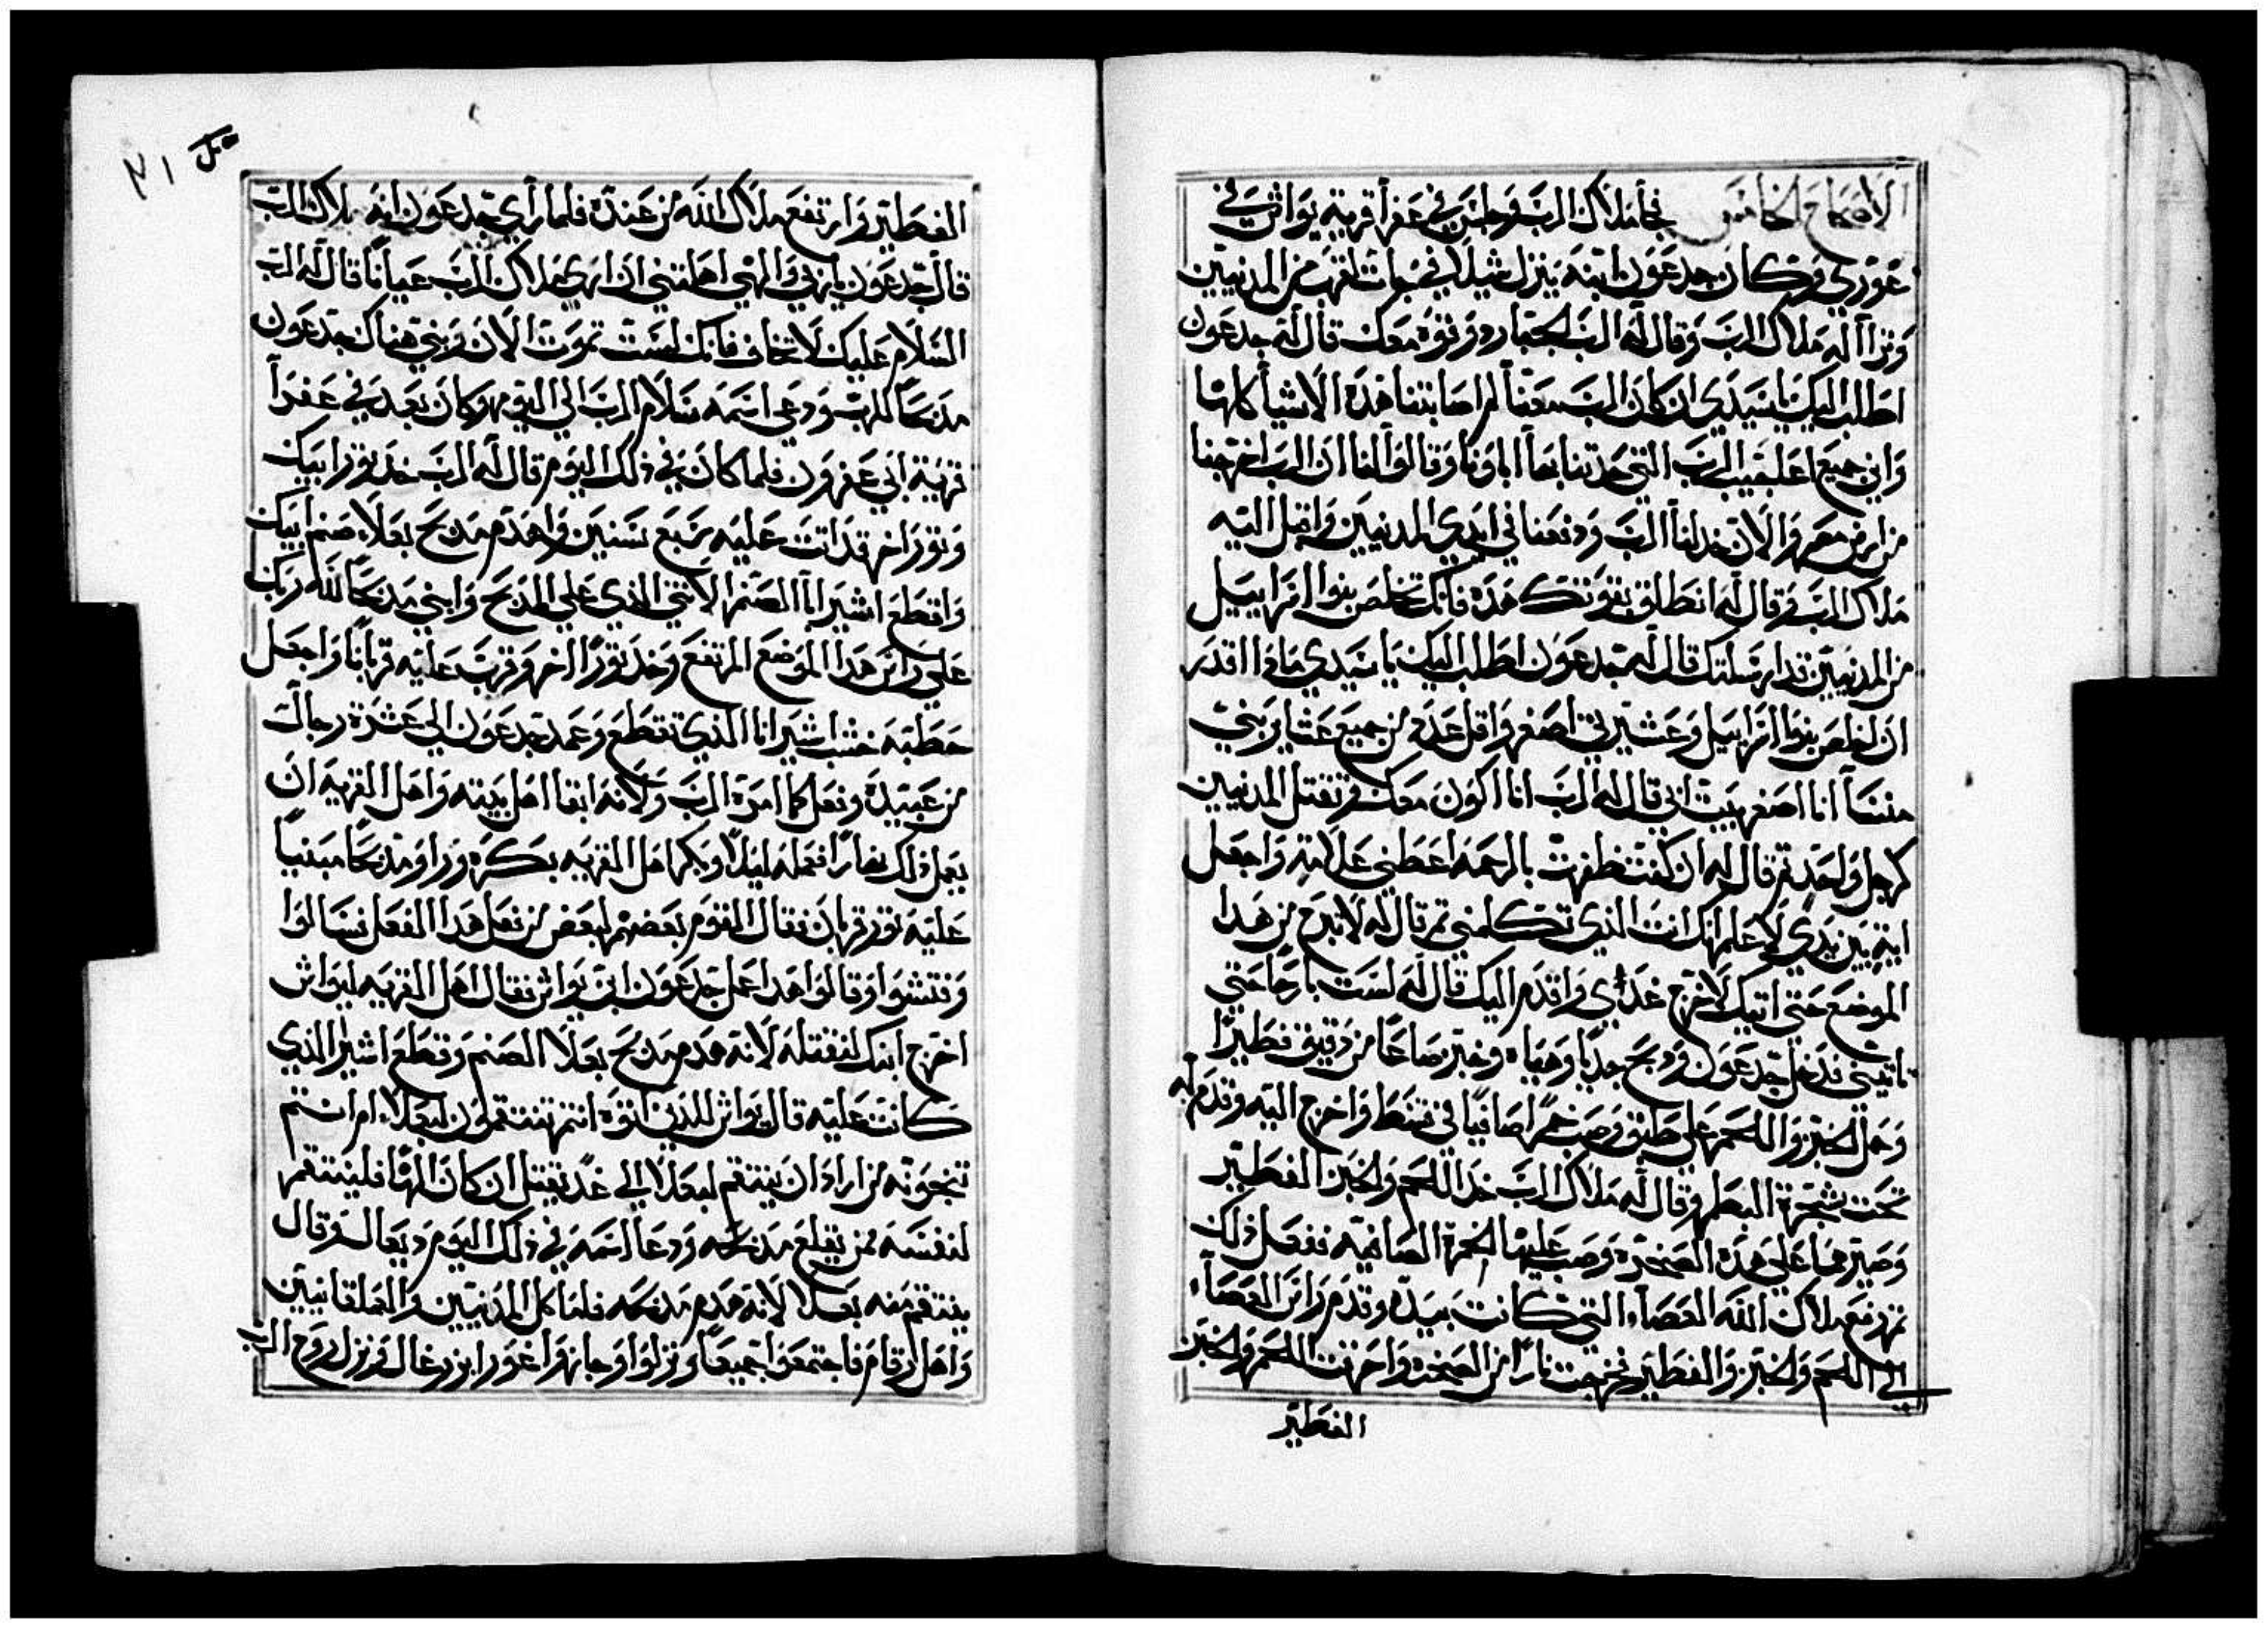 الاصحاح الخامس فجا ملاك الرب وجلس في عفرا قرية يواش في
عوزري وكان جدعون ابنه ينزل شيلا في جات لقرب من المدنيين
وترااله ملاك الرب وقال له الرب الجبار وقوه معك قال له جدعون
اطلب اليك يا سيدي ان كان الرب معنا لم اصابتنا هذه الاشيا كلها
واين جميع اعاجيب الرب التي حدتنا بها اباونا وقالوا لنا ان الرب اخرجنا
من ارض مصر والان خدلنا الرب ودفعنا في ايدي المدنيين واقبل اليه
ملاك الرب وقال له انطلق بقوتك هذه فانك تخلص بنوا اسراييل
من المدنيين قد ارسلتك قال له جدعون اطلب اليك يا سيدي ماذا اقدر
ان اخلص بنوا اسراييل وعشيرتي اصغر واقل عدد من جميع عشاير بني
منسا انا اصغر بيت ابي قال له الرب انا اكون معك وتقتل المدنيين
كرجل واحد تم قال له ان كنت ظفرت بالرحمه اعطني علامه واجعل
ايه بين يدي لاعلم انك انت الذي تكلمني تم قال له لا تبرح من هدا
الموضع حتي اتيك لاخرج غداي واقدم اليك قال له لست بارحا حتي
تاتيني فدخل جدعون ودبح جديا وهياه وخبز صاعا من دقيق فطيرا
وحمل الخبز واللحم علي طبق وصب خمرا صافيا في قسط واخرج اليه وقدم له
تحت شجرة البطم وقال له ملاك الرب خد اللحم والخبز الفطير
وصيرهما علي هده الصخره وصب عليها الخمرة الصافيه ففعل ذلك
تم رفع ملاك الله العصاه التي كانت بيده وقدم راس العصاه
الي اللحم والخبز والفطير فخرجت نارا من الصخره واحرقت اللحم والخبز
الفطير
قبل
٢١
الفطير وارتفع ملاك الله من عنده فلما راي جدعون انه ملاك الرب
قال جدعون يا ربي والهي اهلتني ان اري ملاك الرب عيانا قال له الرب
السلام عليك لا تخاف فانك لست تموت الان وبني هناك جدعون
مدبحا للرب ودعي اسمه سلام الرب الي اليوم وكان بعد في عفرا
قرية ابي عفرون فلما كان في ذلك اليوم قال له الرب خد تور ابيك
وتور اخر قد اتت عليه سبع سنين واهدم مدبح بعلا صنم ابيك
واقطع اشيرانا الصنم الانتي الذي علي المدبح وابني مدبحا لله ربك
علي راس هدا الموضع المرتفع وخد تورا اخر وقرب عليه قربانا واجعل
حطبه خشب اشيرانا الذي تقطع وعمد جدعون الي عشرة رجال
من عبيده وفعل كما امره الرب ولانه اتقا اهل بيته واهل القريه ان
يعمل ذلك نهارا فعمله ليلا وبكر اهل القريه بكره وراو مدبحا مبنيا
عليه تور قربان فقال القوم بعضهم لبعض من فعل هدا الفعل فسالوا
وفتشوا وقالوا هدا عمل جدعون ابن يواش فقال اهل القريه ليواش
اخرج ابنك لنقتله لانه هدم مدبح بعلا الصنم وقطع اشيرا الذي
كانت عليه قال يواش للدين اتوه انتم تنتقمون لبعلا ام انتم
تنجونه من اراد ان ينتقم لبعلا الي غد يقتل ان كان الها فلينتقم
لنفسه ممن يقلع مدبحه ودعا اسمه في ذلك اليوم ديعال وقال
ينتقم منه بعلا لانه هدم مدبحه فلما كل المدنيين والعملقانيين
واهل رقام فاجتمعوا جميعا ونزلوا وجازوا غور ابن رغال ونزل روح الرب